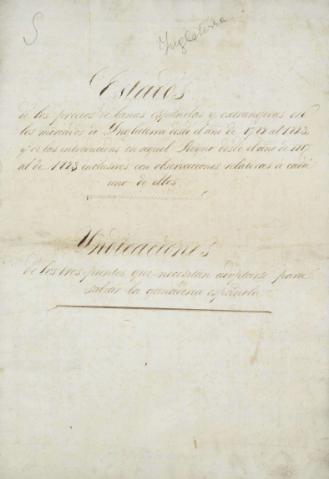 S
Inglaterra
Estados
de los precios de lanas españolas y extrangeras en
los mercados de Inglaterra desde el año de al
y de las introducciones en aquel Reyno desde el año de
al de inclusives con observaciones relativas á cada
uno de ellos
Indicaciones
de los tres puntos que necesitan adoptarse para
salvar la ganaderia española